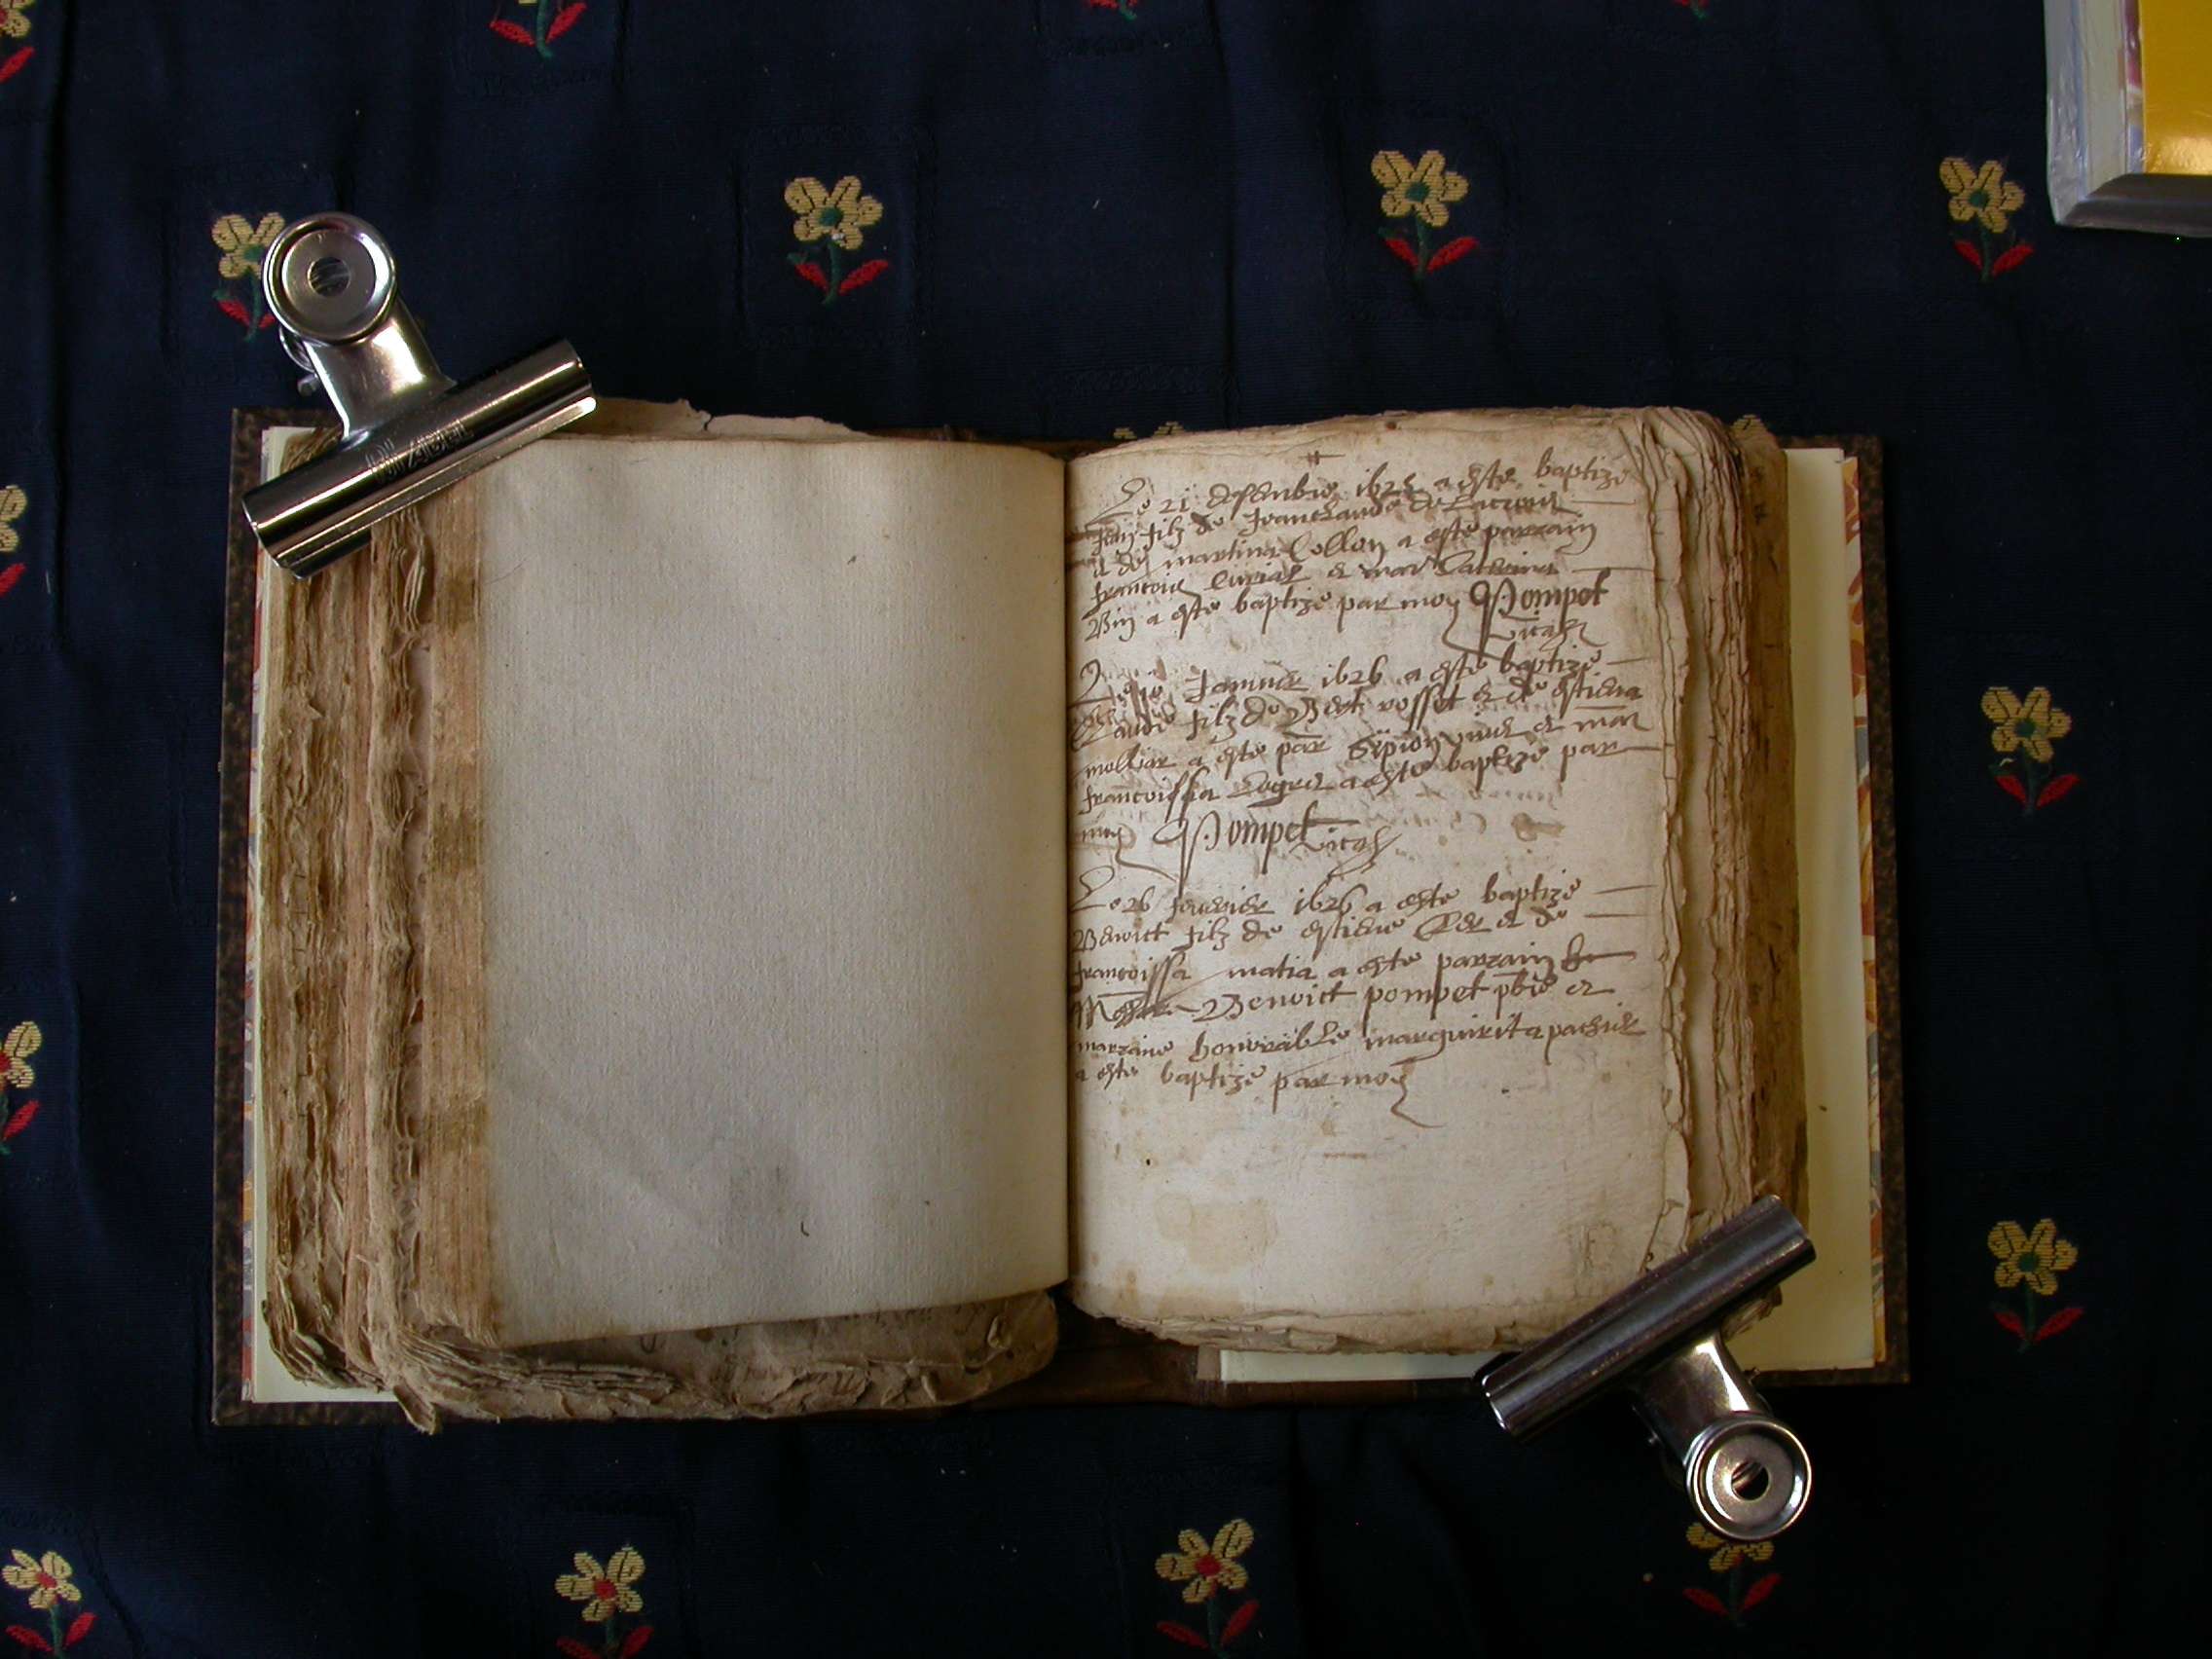 Le 21 desembre 1625 a este baptize
filz de Jean Claude de Lacroix
et de martina Collon a este parrain
francois Curial et mar Catherina
Vin a este baptize par moy Pompet
vicaire
Janvier 1626 a este baptize
Claude filz de rosset et de estiena
molliar a este par et mar
francoissa a este baptize par
moy Pompet vicaire
Le 26 febvrier 1626 a este baptize
Benoict filz de estiene et de
francoissa matia a este parrain
Benoict pompet pbre et
marraine honorable marguirita
a este baptize par moy